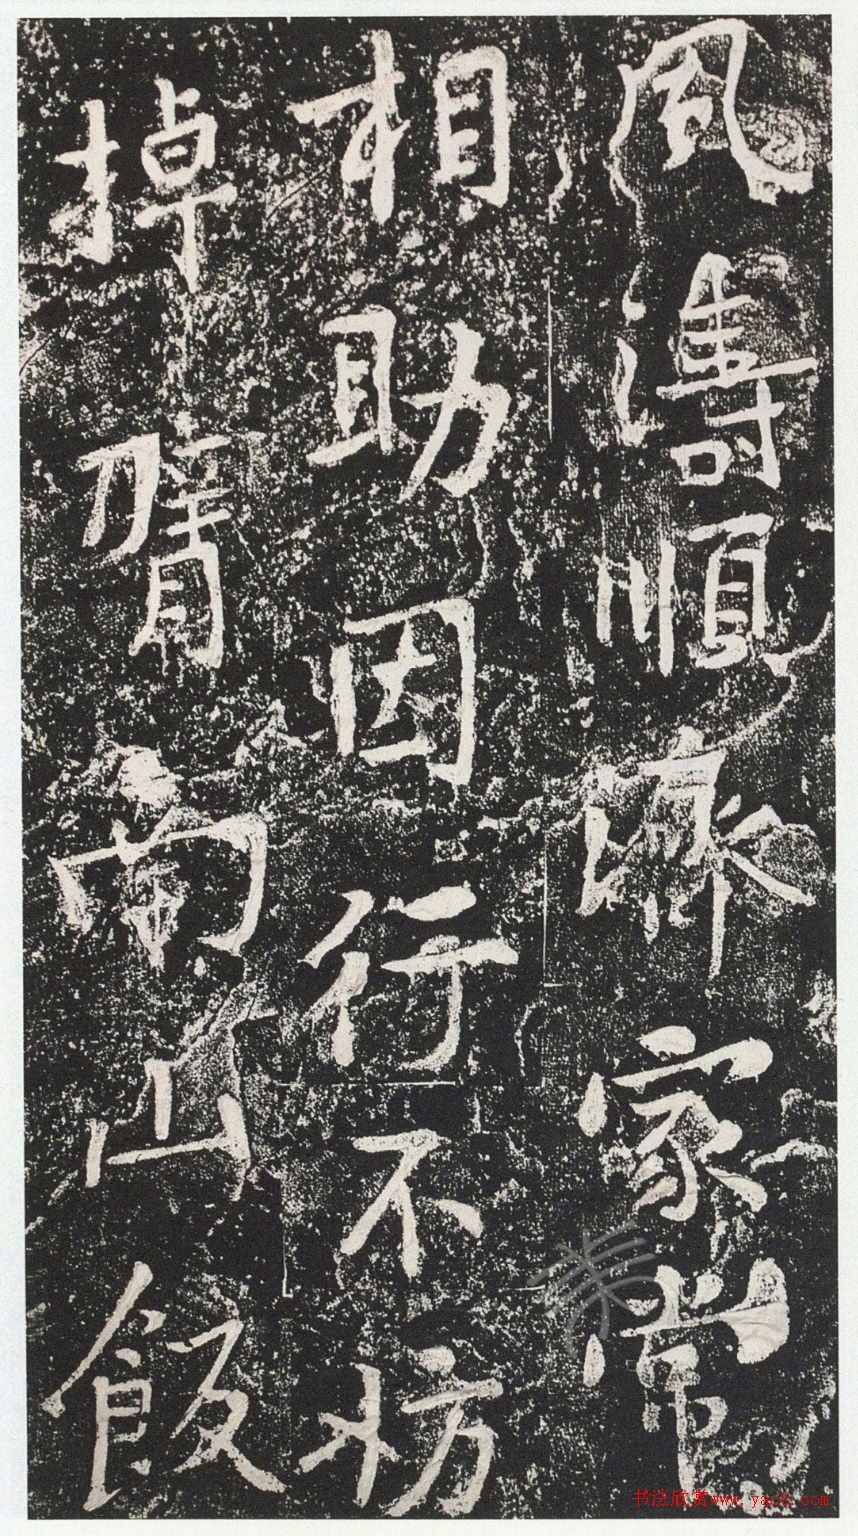 風濤順濟家常
相助因行不妨
掉臂南山飯
书法欣赏www.yac8.com